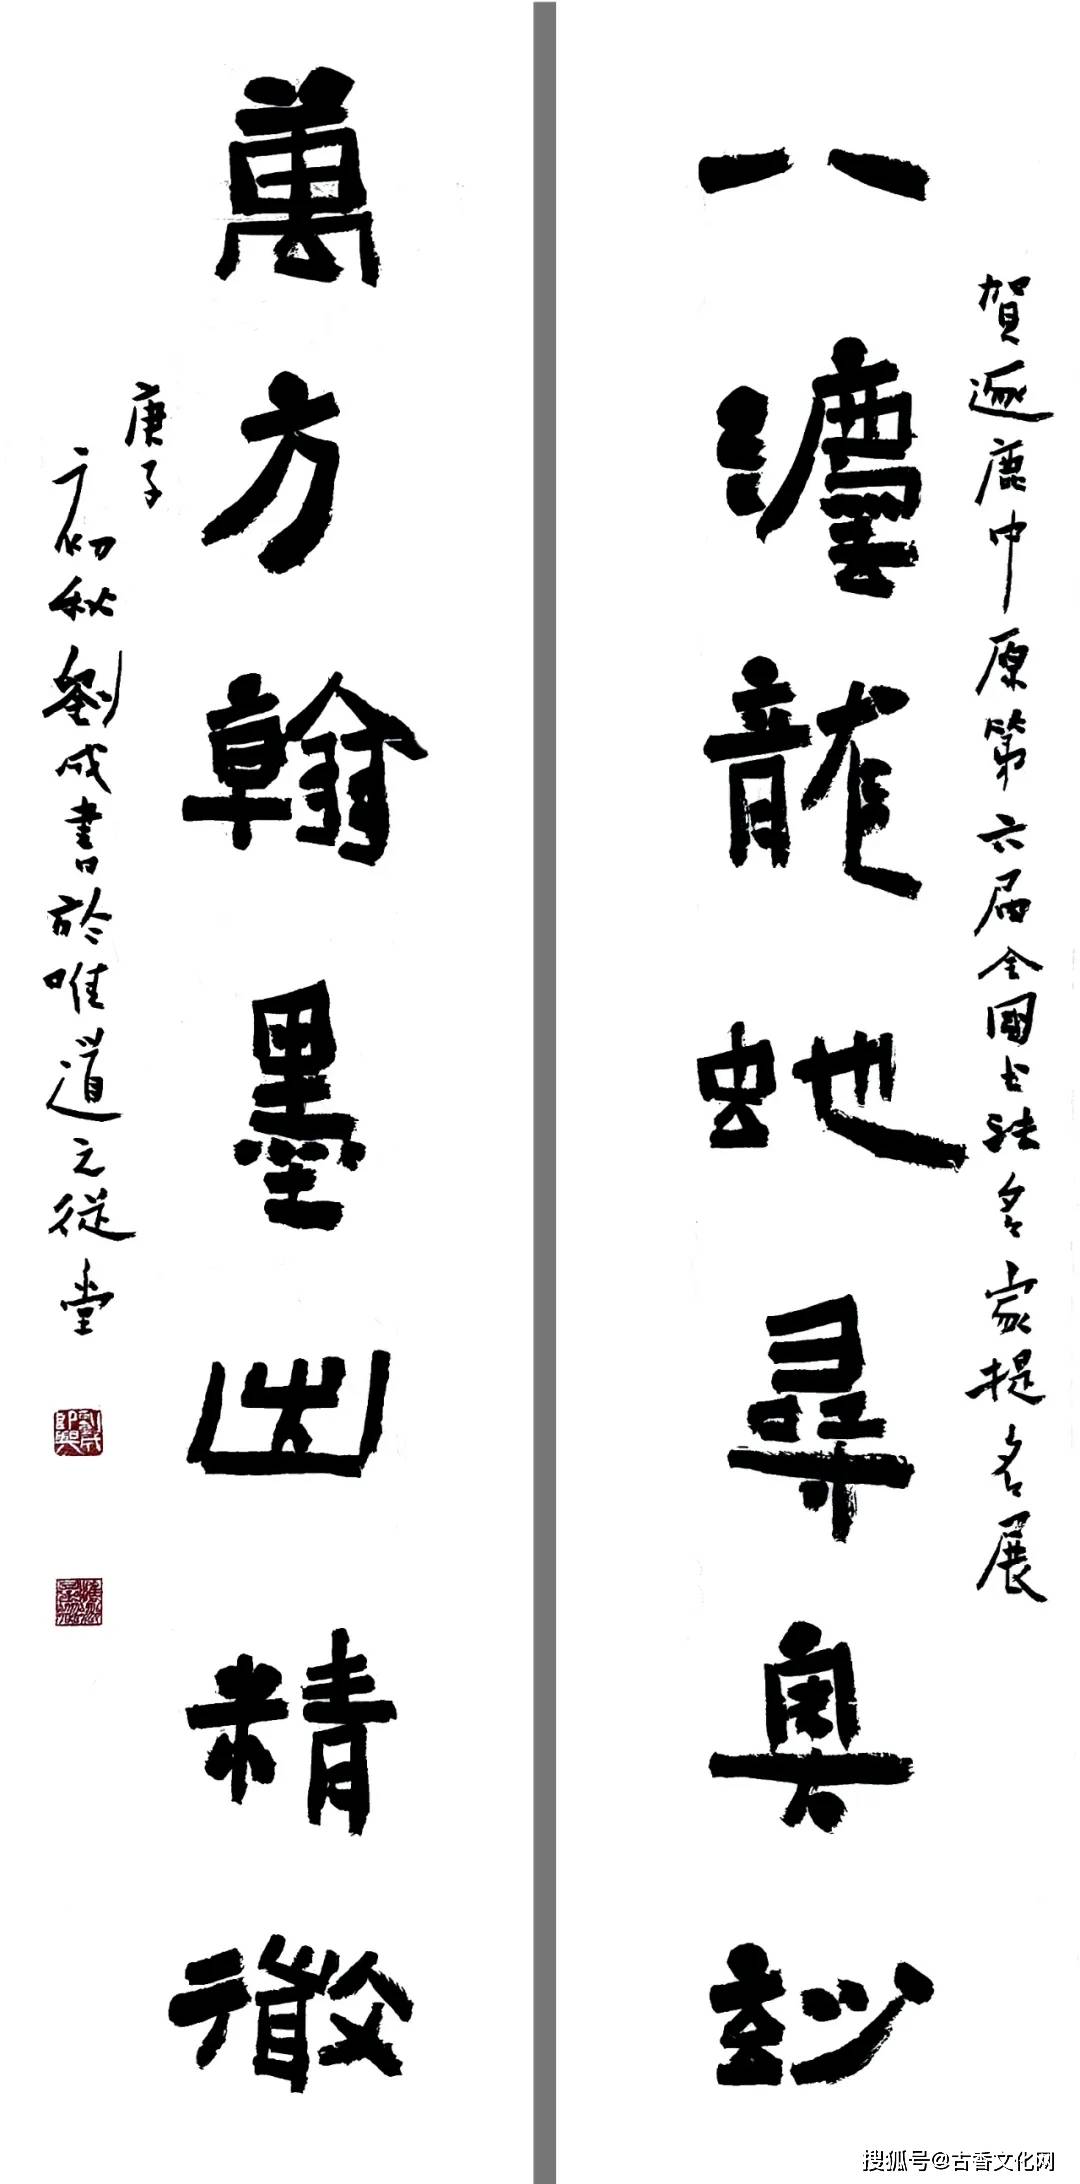 賀逐鹿中原第六届全國书法名家提名展
八瀍龍蛇尋奧玅
萬方翰墨出精微
庚子
初秋劉成書於唯道之從堂
搜狐号@古香文化网